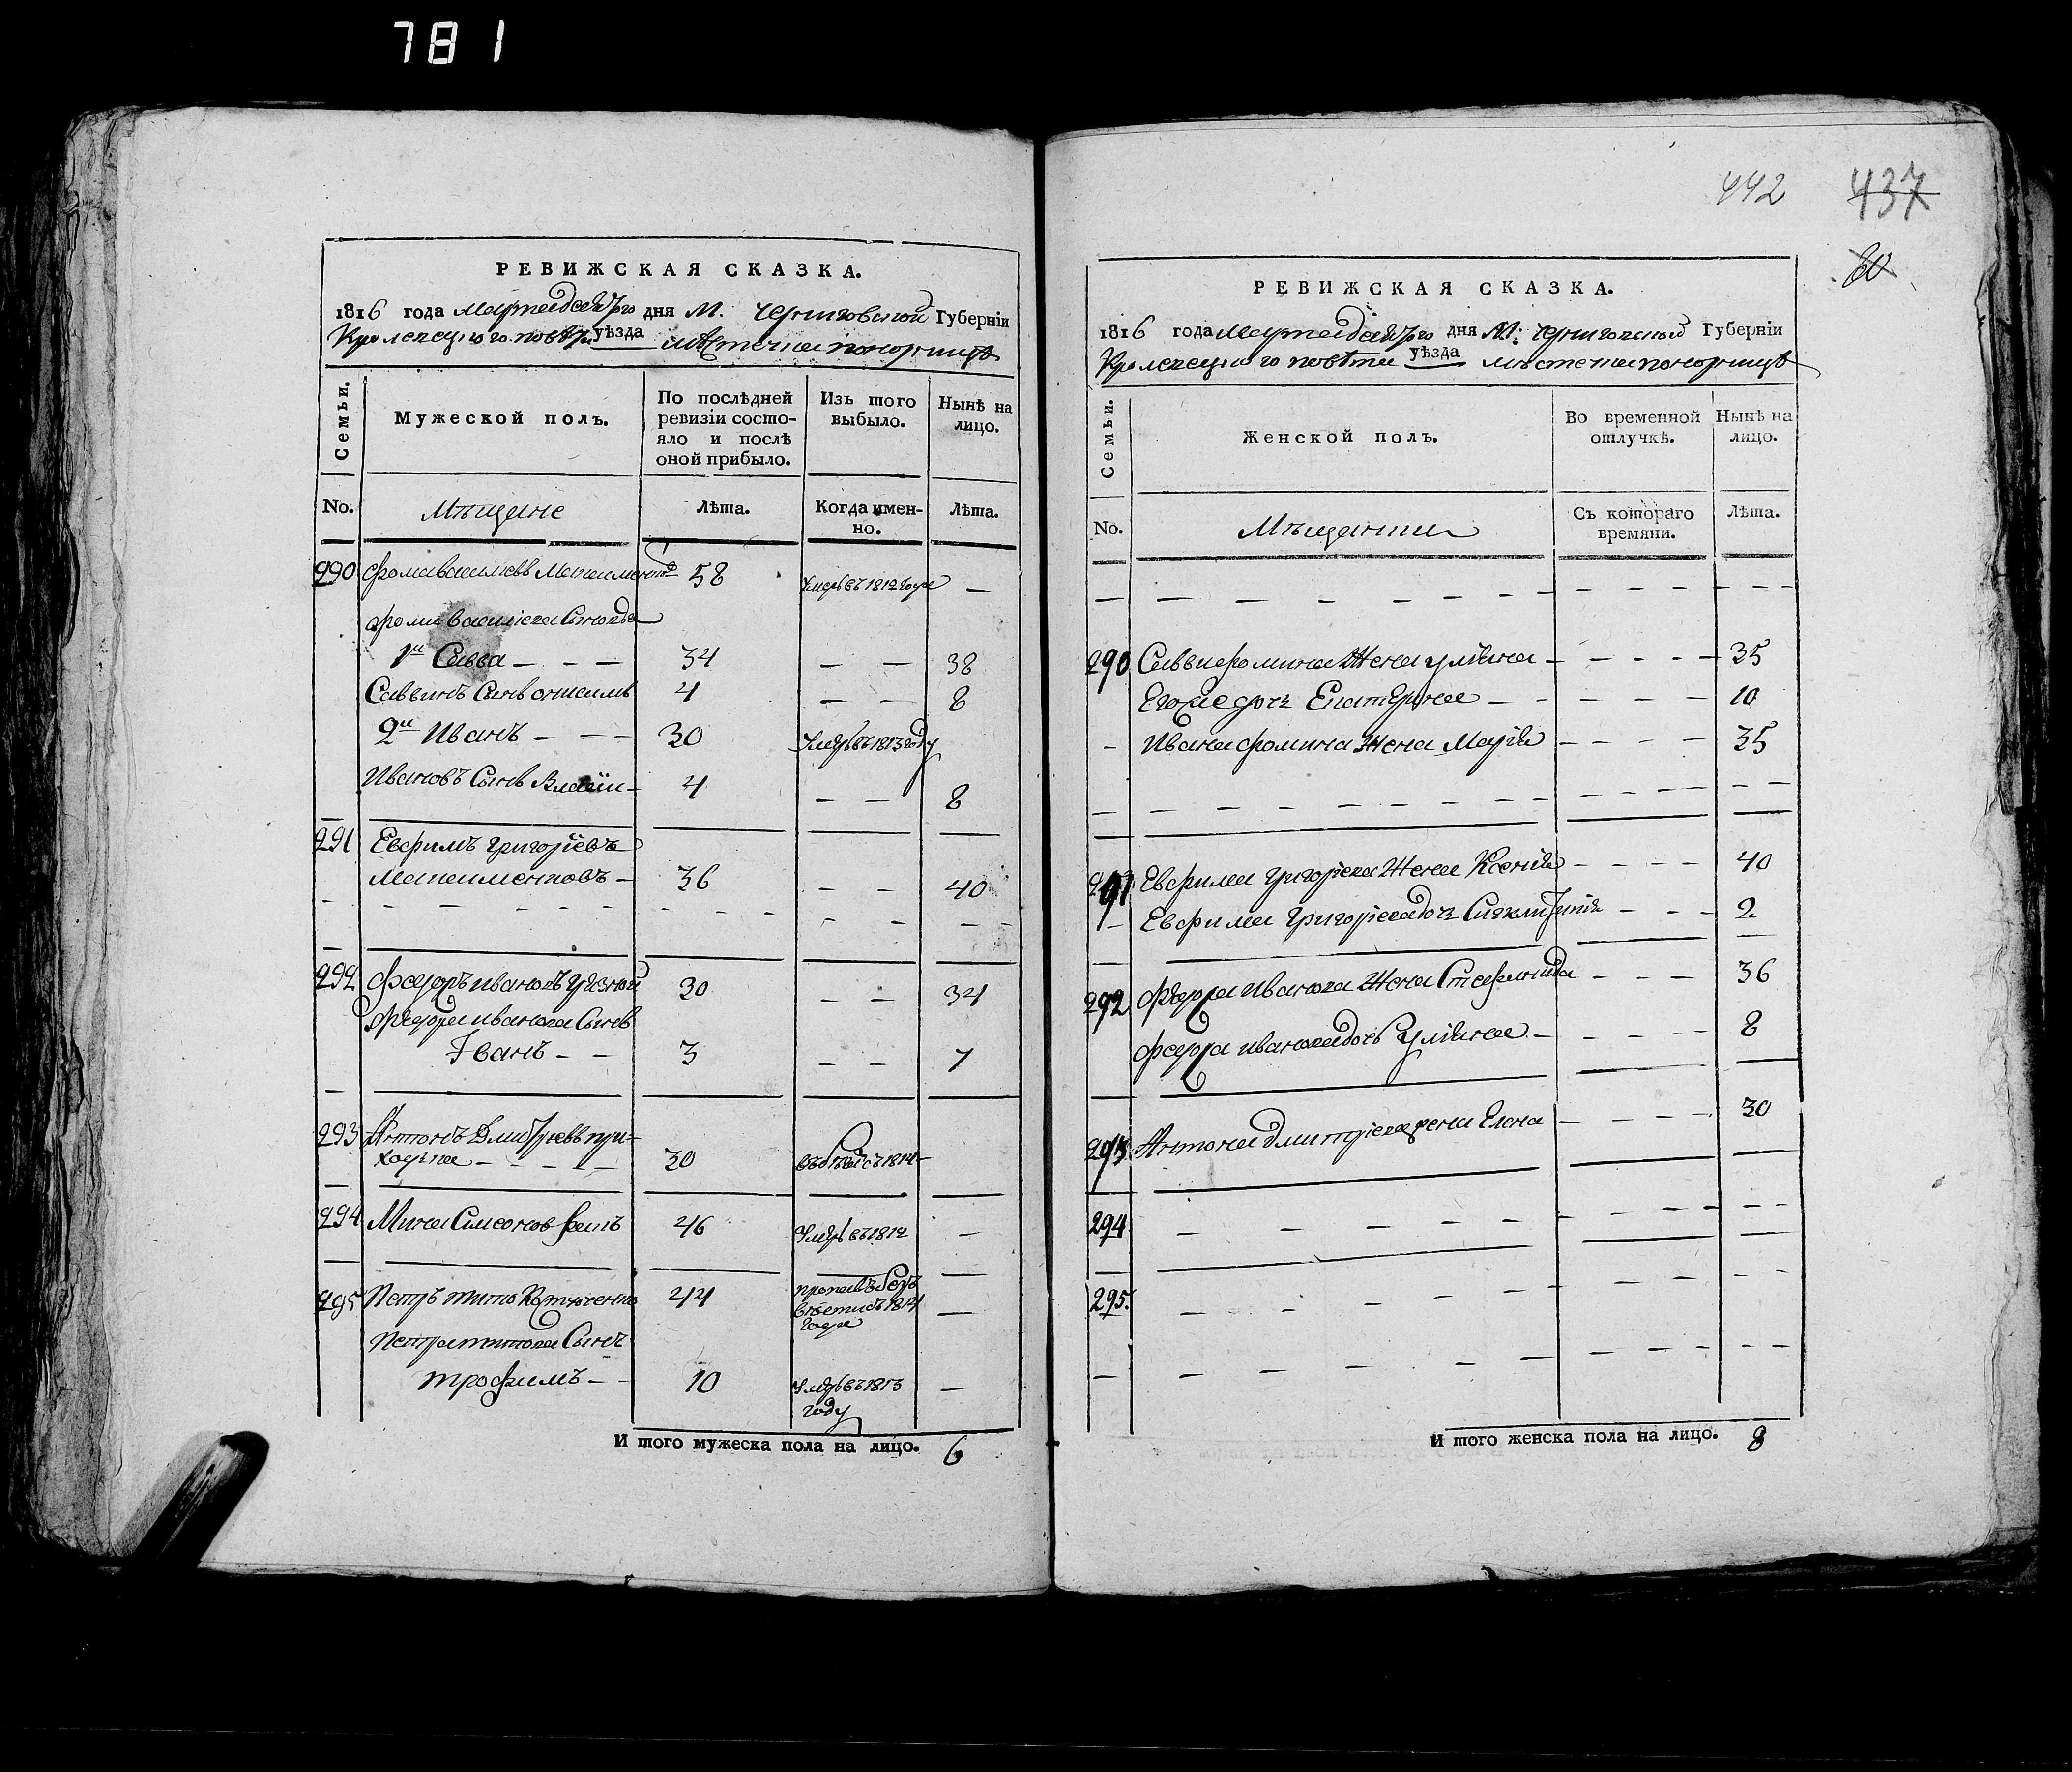 781
РЕВИЖСКАЯ СКАЗКА.
1816 года Марта дня М. Черниговской Губернiи
Кролевецкого повѣта уѣзда мѣстечка Понорницѣ
Семьи.
Мужеской полъ.
По послѣдней ревизiи состо-
яло и послѣ
оной прибыло.
Изъ того
выбыло.
Нынѣ на
лицо.
No.
Мѣщане
Лѣта.
Когда имен-
но.
Лѣта.
290 Фома Васильевъ 58 Умеръ въ 1812 года —
Фомы Василіева Сыновья
1й Савва — — — 34 — — 38
Саввинъ Сынъ Онисимъ 4 — — 8
2й Иванъ — — — 30 Умеръ въ 1813 году
Ивановъ Сынъ 4 — — 8
291 Евфимъ Григорiевъ
— 36 — — 40
292 Федоръ Ивановъ 30 — — 34
Федора Иванова Сынъ
Iванъ — — 3 — — 7
293 Антонъ Дмитрiевъ при-
ходька — — — — — 30 1814
294 Мина Симонов 46 Умеръ въ 1812 —
295 Петръ Титов 44 пропавъ безъ
вѣсти въ 1814
года —
Петра Титова Сынъ
Трофимъ — — 10 Умеръ въ 1813
году —
И того мужеска пола на лицо. 6
442 437
60
РЕВИЖСКАЯ СКАЗКА.
1816 года Марта дня М: Черниговской Губернiи
Кролевецкого повѣта уѣзда мѣстечка Понорницѣ
Семьи.
Женской полъ.
Во временной
отлучкѣ.
Нынѣ на
лицо.
No.
Мѣщанки
Съ котораго
времяни.
Лѣта.
290 Саввы Фомина Жена Улiяна — — — — — 35
Его же дочь Екатерина — — — — — 10
— Ивана Фомина Жена Марiя — — — — 35
291 Евфима Григорiева Жена Ксенiя — — — — 40
— Евфима Григорiева дочь — — — 2
292 Федора Иванова Жена Стефанида — — — 36
Федора Иванова дочь Улiяна — — — — 8
293 Антона Дмитрiева жена Елена — — — — 30
294
295.
И того женска пола на лицо. 8